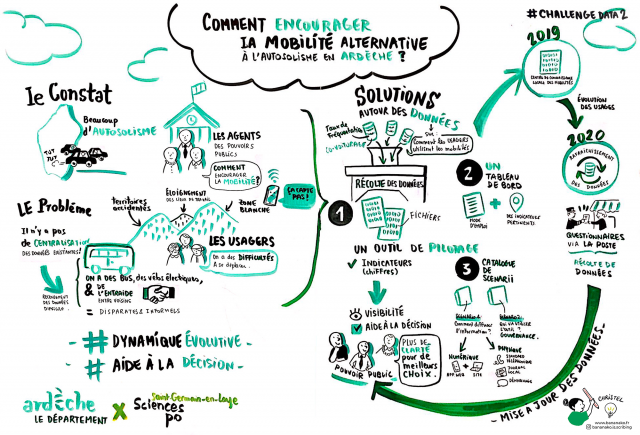 COMMENT ENCOURAGER
LA MOBILITÉ ALTERNATIVE
À L'AUTOSOLISME EN ARDÈCHE ?
#CHALLENGE DATA 2
Le Constat
Beaucoup
d'AUTOSOLISME
TUT
TUT
LES AGENTS
DES POUVOIRS
PUBLICS
COMMENT
ENCOURAGER
LA MOBILITÉ ?
LE Problème
Il n'y a pas
de CENTRALISATION
DES DONNÉES EXISTANTES !
RECENSEMENT
DES DONNÉES
DIFFICILE
territoires
accidentés
ÉLOIGNEMENT
DES LIEUX DE TRAVAIL
ZONE
BLANCHE
ÇA CAPTE
PAS !
LES USAGERS
On a des DIFFICULTÉS
À se déplacer.
ON A DES BUS, DES vélos électriques,
& DE
L'ENTRAIDE
ENTRE VOISINS
= DISPARATES & INFORMELS
# DYNAMIQUE ÉVOLUTIVE -
# AIDE À LA DÉCISION -
ardèche
LE DÉPARTEMENT
X
Saint-Germain-en-Laye
Sciences
po
SOLUTIONS
AUTOUR DES DONNÉES
Taux de
fréquentation
CO-VOITURAGE
sur :
Comment les USAGERS
utilisent les mobilités
RÉCOLTE DES DONNÉES
1
FICHIERS
UN OUTIL DE PILOTAGE
INDICATEURS
(chiffres)
VISIBILITÉ
AIDE À LA DÉCISION
POUVOIR PUBLIC
PLUS DE
CLARTÉ
pour de
meilleurs
CHOIX.
2
UN
TABLEAU
DE BORD
MODE
D'EMPLOI
+
DES INDICATEURS
PERTINENTS
3
CATALOGUE
DE
SCENARII
Comment diffuser
l'information ?
GOUVERNANCE.
NUMÉRIQUE
APP WEB
+
SITE
PHYSIQUE
JOURNAL
LOCAL
2019
CENTRE DE CONNAISSANCE
LOCALE DES MOBILITÉS
ÉVOLUTION
DES USAGES
2020
RAFRAICHISSEMENT
DES
DONNÉES
QUESTIONNAIRES
VIA LA POSTE
RÉCOLTE DE
DONNÉES
- MISE À JOUR DES DONNÉES -
CHRISTEL
www.bananako.fr
bananako.scribing